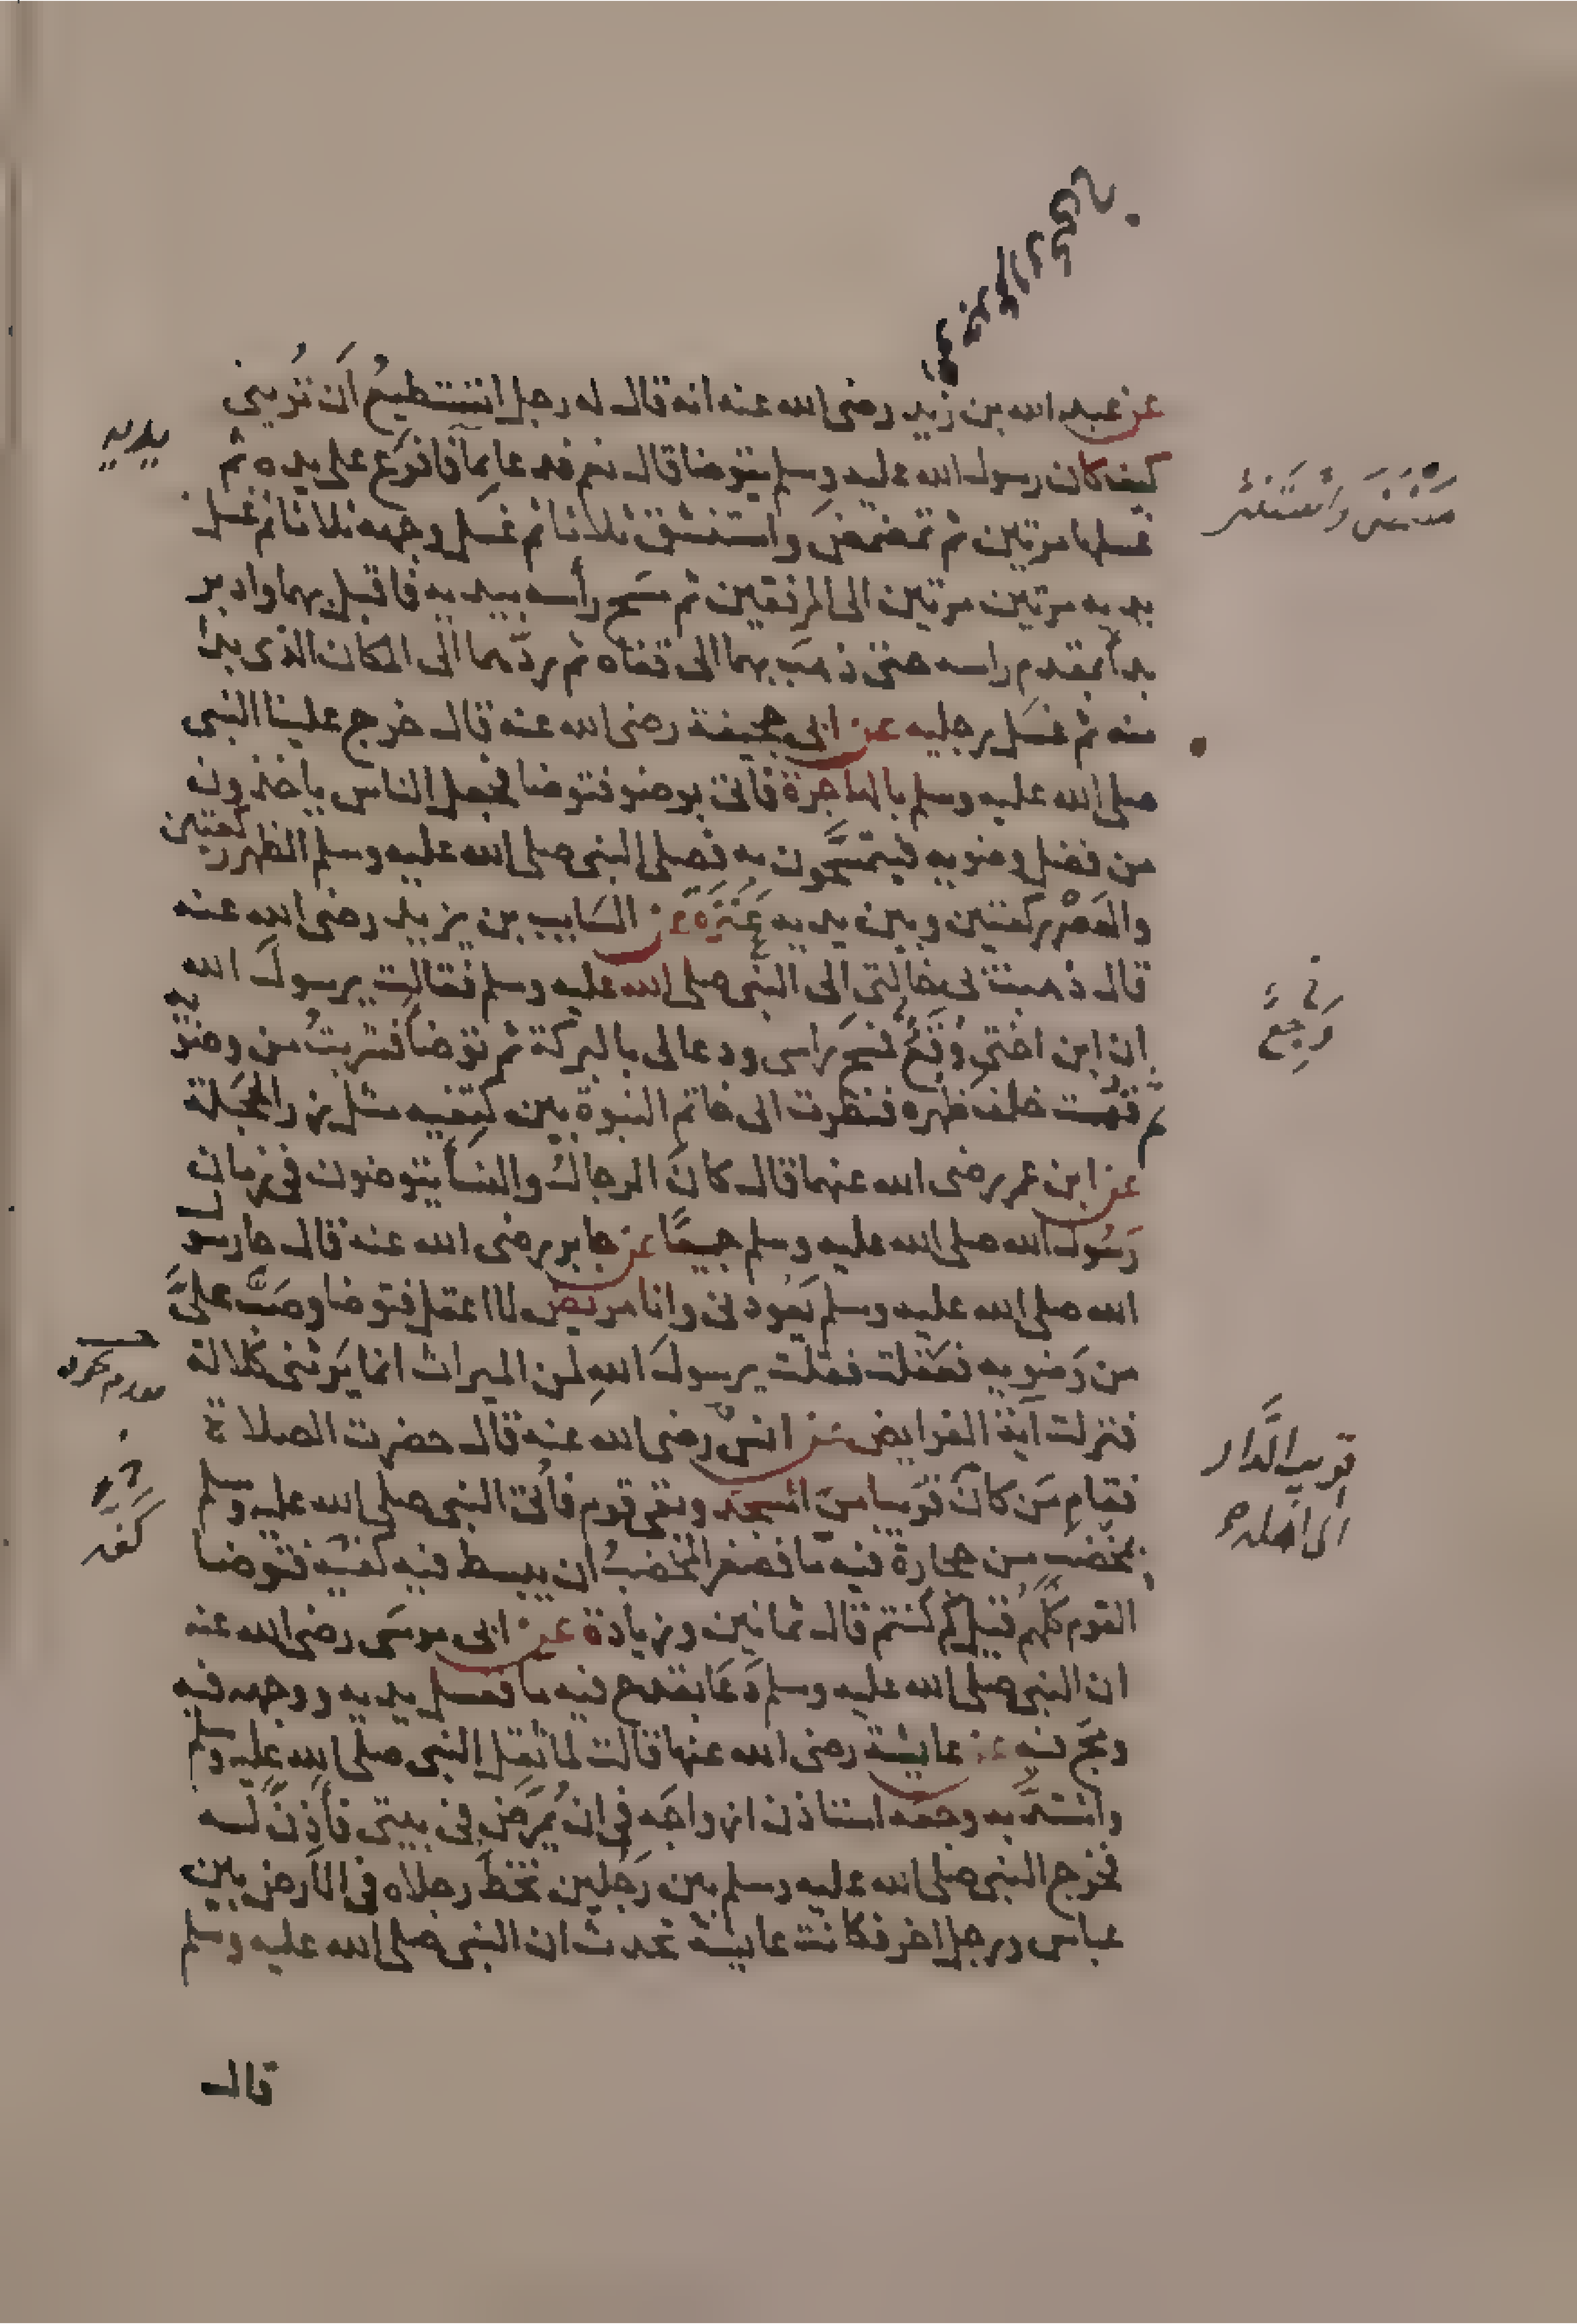 عن عبد الله بن زيد رضى الله عنه انه قال له رجل اتستطيع أن تُريني
كيف كان رسول الله عليه وسلم يتوضا قال نعم فدعا بماٍ فافرغ على يده ثم
غسلها مرتين ثم تمضمض واستنشق ثلاثا ثم غسل وجهه ثلاثا ثم غسل
يديه مرتين مرتين الى المرفقين ثم مسح رأسه بيديه فاقبل بهما وادبر
بدأ بمقدم راسه حتى ذهب بهما الى قفاه ثم ردّهما الى المكان الذى بدا
منه ثم غسل رجليه عن ابى جحيفة رضى الله عنه قال خرج علينا النبى
صلى الله عليه وسلم بالهاجرة فاتى بوضو فتوضا فجعل الناس ياخذون
من فضل وضويه فيتمسَّحون به فصلى النبى صلى الله عليه وسلم الظهر ركعتين
والعصْر ركعتين وبين يديه عَنَزَة عن السايب بن يزيد رضى الله عنه
قال ذهبت بى خالتى الى النبى صلى الله عليه وسلم فقالت يرسول الله
ان ابن اختى وَقِعٌ فمسح راسى ودعا لى بالبركة ثم توضا فشربتُ من وضوئه
ثم قمت خلف ظهره فنظرت الى خاتم النبوة بين كتفيه مثل زر الحَجَلة
عن ابن عمر رضى الله عنهما قال كان الرجالُ والنسا يتوضون فى زمان
رَسُول الله صلى الله عليه وسلم جميعًا عن جابر رضى الله عنه قال جا رسول
الله صلى الله عليه وسلم يَعُودنى وانا مريض لا اعقل فتوضا وصَبَّ علىَّ
من وَضويه فعَقلت فقلت يرسولَ اللهِ لمن الميراث انما يَرثنى كلالة
فنزلت آية الفرايض عن انس رضى الله عنه قال حضرت الصلاة
فقام مَن كان قريبا من المسجد وبقى قوم فأتى النبى صلى الله عليه وسلم
بمخضب من حجارة فيه ما فصغر المخضبُ ان يبسط فيه كفّيه فتوضا
القوم كلّهم قيل كم كنتم قال ثمانين وزيادة عن ابى موسَى رضى الله عنه
ان النبى صلى الله عليه وسلم دَعَا بقدح فيه ما فغسل يديه ووجهه فيه
ومجّ فيه عن عايشة رضى الله عنها قالت لما ثَقل النبى صلى الله عليه وسلم
واشتدَّ به وجعُه استاذن ازواجَه فى ان يُمرَّض فى بيتى فأذِنَّ له
فخرج النبى صلى الله عليه وسلم بين رَجُلين تخطّ رجلاه فى الأرض بين
عباس ورجل اخر فكانت عايشة تحدث ان النبى صلى الله عليه وسلم
قال
يديه
وَجِعٌ
قريب الدَّار
الى اهله
كفه